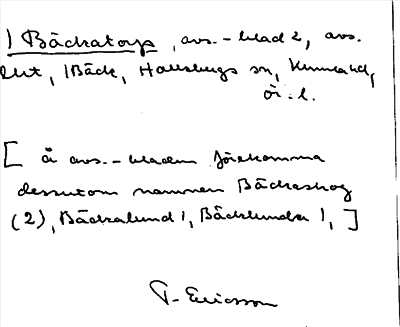 1 Bäckatorp, avs.-blad 2, avs.
ekt, 1 Bäck, Hallsbergs sn, Kumla hd,
Ör. l.
[ å avs.-bladen förekomma
dessutom namnen Bäckaskog
(2), Bäckalund 1, Bäcklunda 1, ]
T. Ericsson